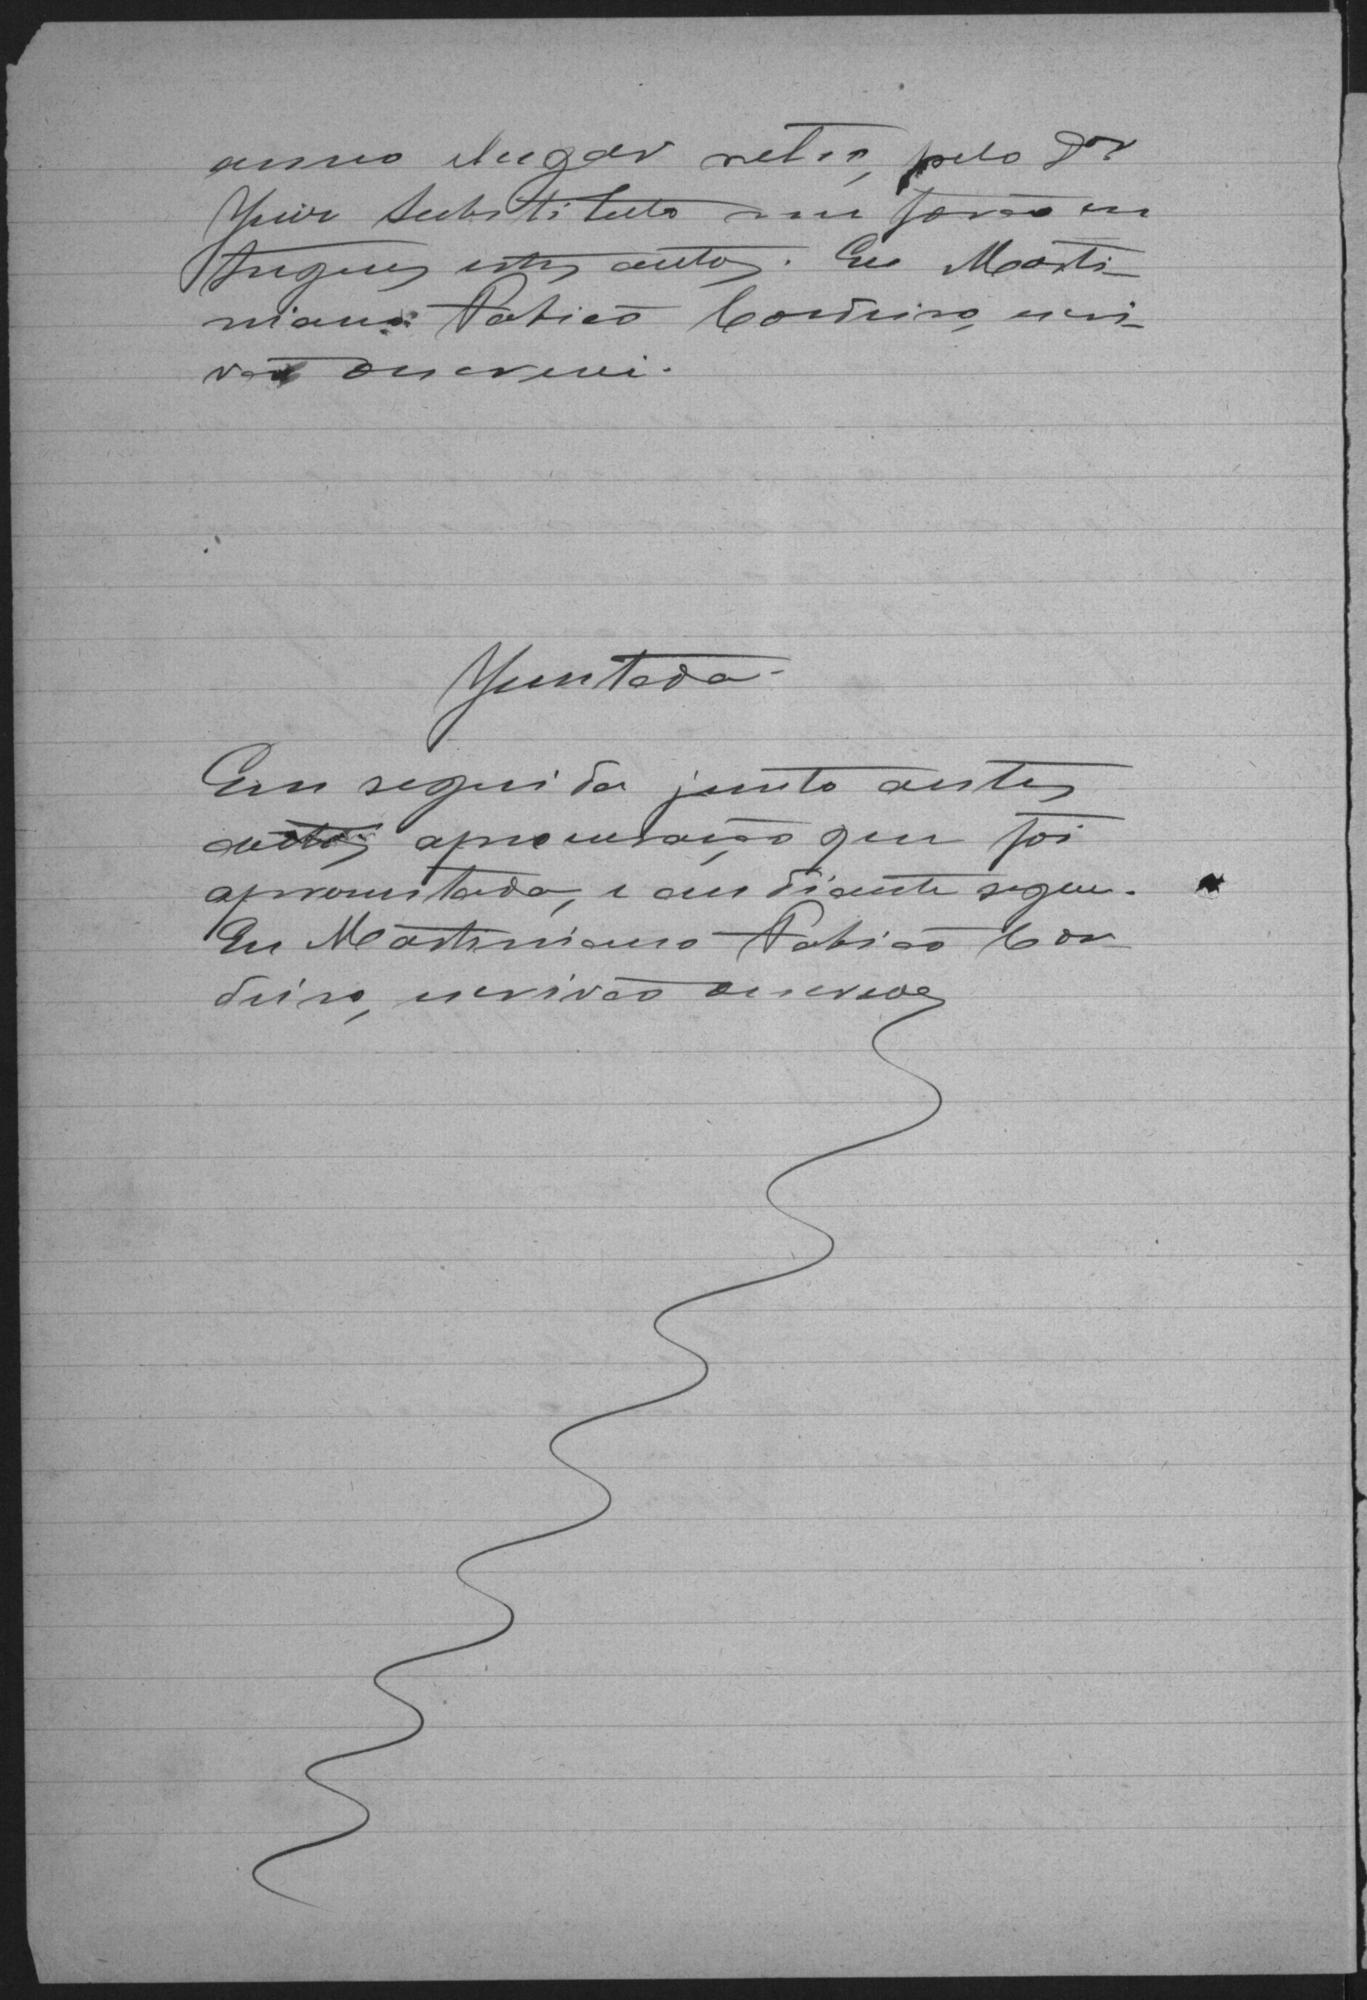 anno e lugar retro, pelo Dor
Juiz Substituto me forão en
tregues estes autos. Eu Marti-
niano Fabião Cordeiro, escri-
vão o escrevi.
Juntada
Em seguida junto a estes
autos a procuração que foi
apresentada, e ao diante segue.
Eu Martiniano Fabião Cor
deiro, escrivão o escrevi